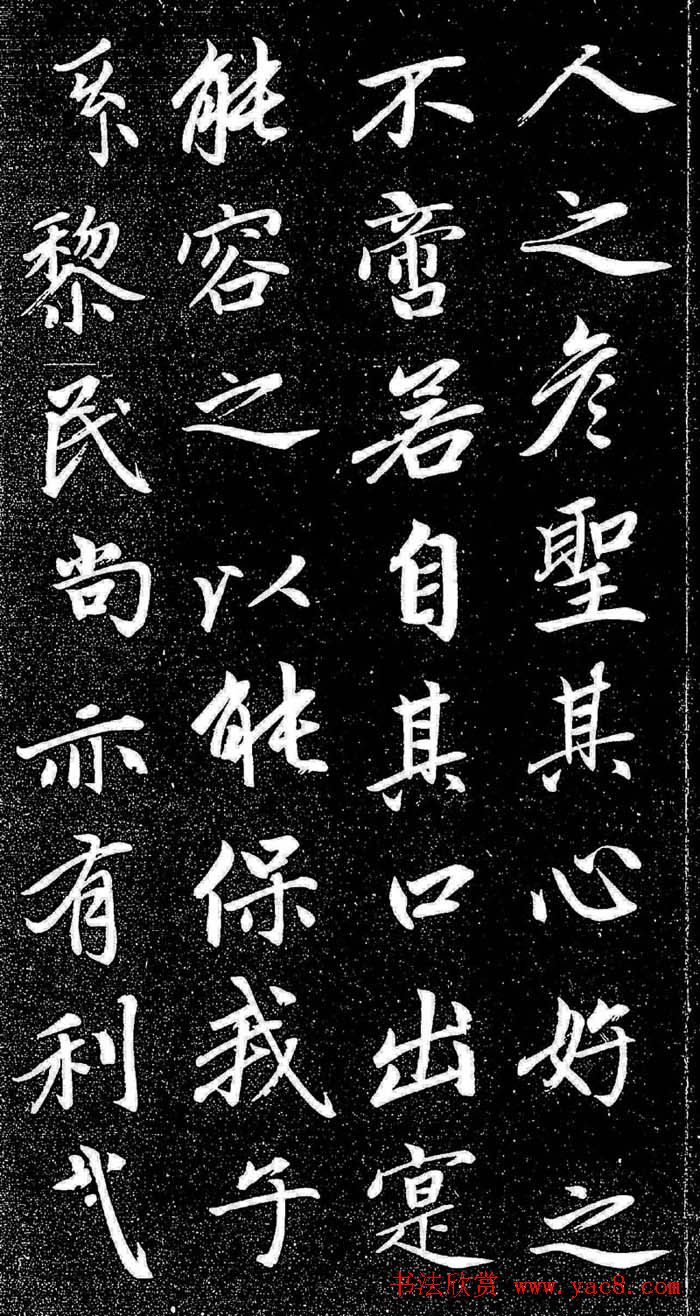 人之彦聖其心好之
不啻若自其口出寔
能容之以能保我子
孫黎民尚亦有利哉
书法欣赏 www.yac8.com